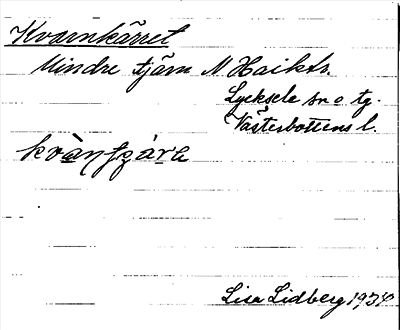 Kvarnkärret
Mindre tjärn N Haiktr.
Lycksele sn o tg.
Västerbottens l.
kvὰn̩ʃʒárɐ
Lisa Lidberg 1934